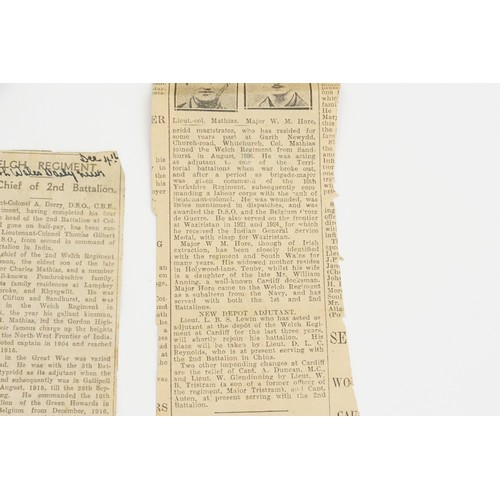 Dec 4th
ELCH REGIMENT
Chief of 2nd Battalion.
nt-Colonel A. Derry, D.S.O., C.B.E.,
iment, having completed his tour
head of the 2nd Battalion at Col-
d gone on half-pay, has been suc-
Lieutenant-Colonel Thomas Gilbert
D.S.O., from second in command of
attalion in India.
chief of the 2nd Welch Regiment
dsman, the eldest son of the late
r Charles Mathias, and a member
ll-known Pembrokeshire family,
family residences at Lamphey
broke, and Rhysgwilt. He was
Clifton and Sandhurst, and was
in the Welch Regiment in
the year his gallant kinsman,
Mathias, led the Gordon High-
eir famous charge up the heights
the North-West Frontier of India.
noted captain in 1904 and reached
1915.
in the Great War was varied
ad. He was with the 3th Bat-
rpedid as adjutant when the
nd subsequently was in Gallipoli
August, 1915, till the 28th Sep-
ng. He commanded the 10th
alion of the Green Howards in
Belgium from December, 1916,
Lieut.-col. Mathias. Major W. M. Hore.
eridd magistrates, who has resided for
some years past at Garth Newydd,
Church-road, Whitchurch. Col. Mathias
joined the Welch Regiment from Sand-
hurst in August, 1898. He was acting
as adjutant to one of the Terri-
torial battalions when war broke out,
and after a period as brigade-major
was given command of the 10th
Yorkshire Regiment, subsequently com-
manding a labour corps with the rank of
lieutenant-colonel. He was wounded, was
twice mentioned in dispatches, and was
awarded the D.S.O. and the Belgium Croix
de Guerre. He also served on the frontier
at Waziristan in 1921 and 1924, for which
he received the Indian General Service
Medal, with clasp for Waziristan.
Major W. M. Hore, though of Irish
extraction, has been closely identified
with the regiment and South Wales for
many years. His widowed mother resides
in Holywood-lane, Tenby, whilst his wife
is a daughter of the late Mr. William
Anning, a well-known Cardiff docksman.
Major Hore came to the Welch Regiment
as a subaltern from the Navy, and has
served with both the 1st and 2nd
Battalions.
NEW DEPOT ADJUTANT.
Lieut. L. B. S. Lewin who has acted as
adjutant at the depot of the Welch Regi-
ment at Cardiff for the last three years,
will shortly rejoin his battalion. His
place will be taken by Lieut. D. L. C.
Reynolds, who is at present serving with
the 2nd Battalion in China.
Two other impending changes at Cardiff
are the relief of Cant. A. Duncan, M.C.,
and Lieut. W. Glendinning by Lieut. W.
B. Tristram (a son of a former officer of
the regiment, Major Tristram), and Cant.
Auten, at present serving with the 2nd
Battalion.
ER
his
in
the
G
SE
WO
CAR